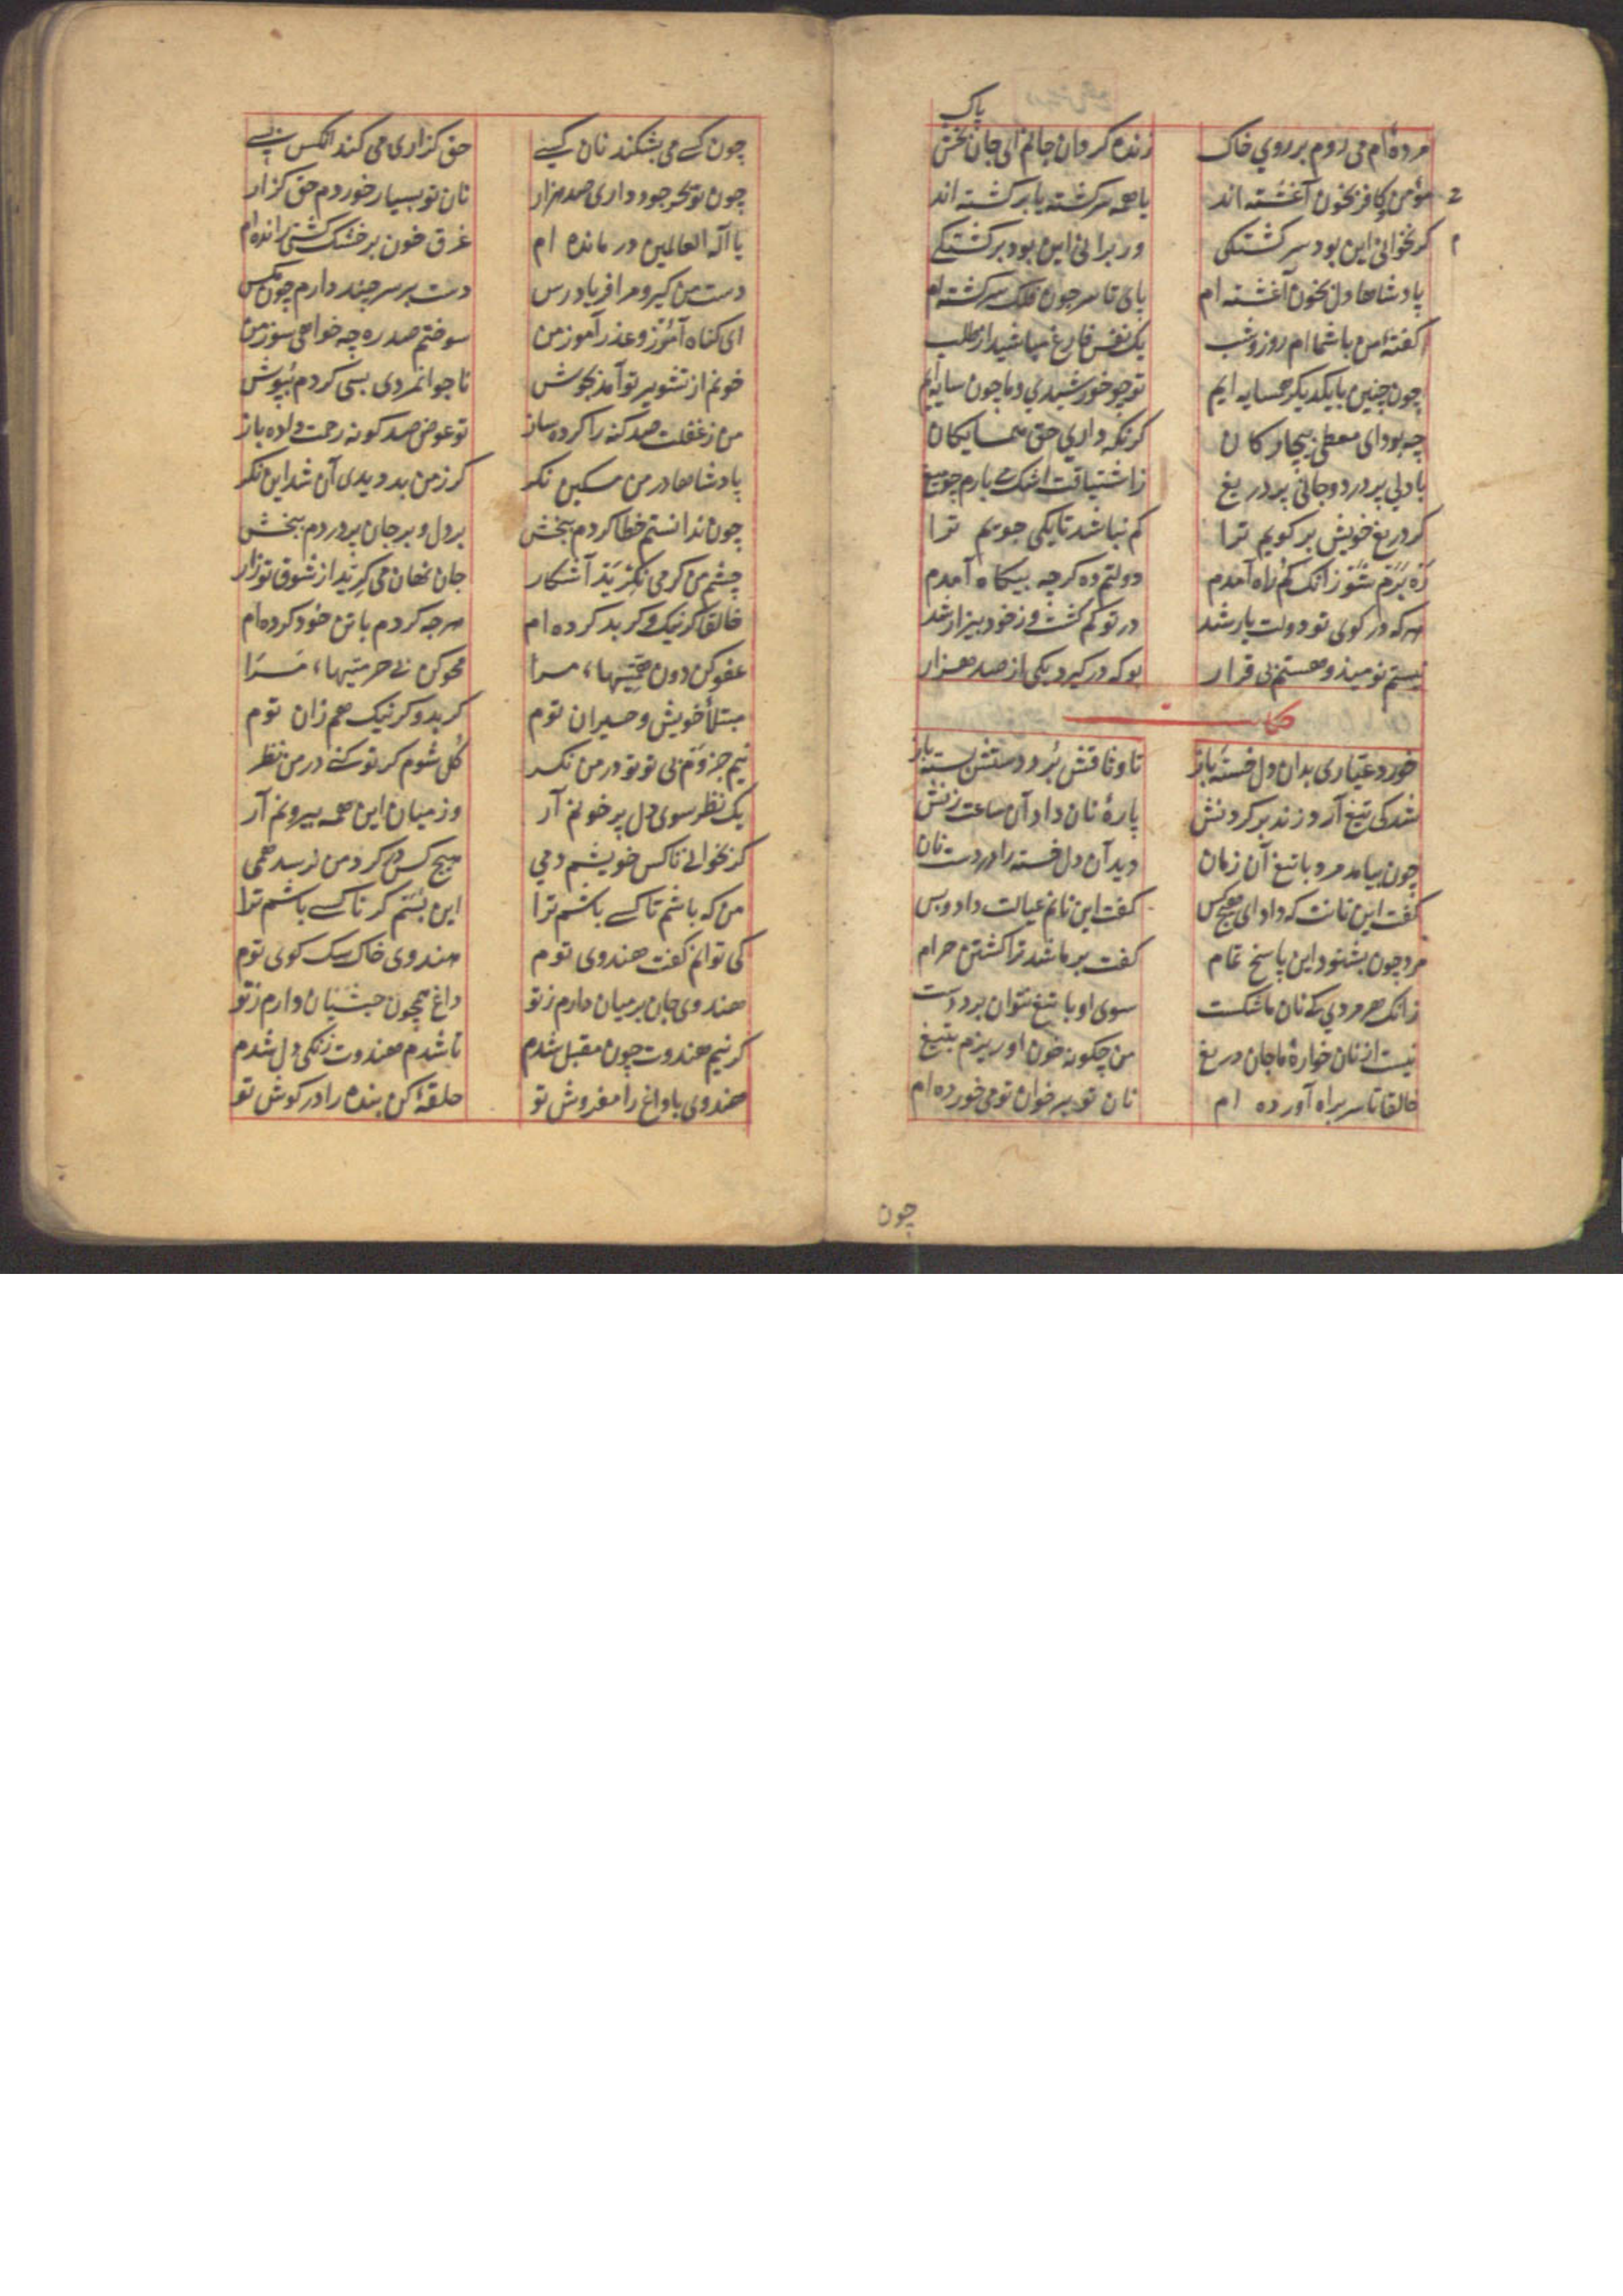 پاک
مرده‌ام می روم بر روی خاک زنده کردان جانم ای جان بخش
مؤمن و کافر بخون آغشته اند یا همه سرکشته یا برکشته اند
کر بخوانی این بود سرکشتکی ور برانی این بود برکشتکی
پادشاها دل بخون آغشته ام پای تا سر چون فلک سرکشته ام
کفتهٔ من با شما ام روز و شب یک نفس فارغ مباشید از طلب
چون چنین با یکدیکر همسایه ایم تو چو خورشیدی و ما چون سایه ایم
چه بود ای معطی بیچارکان کر نکه داری حق همسایکان
با دلی پر درد و جانی پر دریغ ز اشتیاقت اشک می بارم چو میغ
کر دریغ خویش بر کویم ترا کم نباشد تا یکی جویم ترا
ره برم شو زانک کم راه آمدم دولتم ده کرچه بیکاه آمدم
هر که در کوی تو دولت یار شد در تو کم کشت و ز خود بیزار شد
نیستم نومید و هستم بی قرار بو که در کیرد یکی از صد هزار
خورد عیاری بدان دل خسته باز تا وثاقش برد دستش بسته باز
شد کی تیغ آرد زند بر کردنش پارهٔ نان داد آن ساعت زنش
چون بیامد مرد با تیغ آن زمان دید آن دل خسته را در دست نان
کفت این نانت که داد ای هیچ کس کفت این نانم عیالت داد و بس
مرد چون بشنود این پاسخ تمام کفت بر ما شد ترا کشتن حرام
زانک هر مردی که نان ما شکست سوی او با تیغ نتوان برد دست
نیست از نان خوارهٔ ما جان دریغ من چکونه خون او ریزم بتیغ
خالقا تا سر براه آورده ام نان تو بر خوان تو می خورده ام
چون
چون کسی می بشکند نان کسی حق کزاری می کند انکس بسی
چون تو بحر جود داری صد هزار نان تو بسیار خوردم حق کزار
یا آله العالمین درمانده ام غرق خون بر خشک کشتی رانده ام
دست من کیر و مرا فریاد رس دست بر سر چند دارم چون مکس
ای کناه آمرز و عذر آموز من سوختم صد ره چه خواهی سوز من
خونم از تشویر تو آمد بجوش ناجوانمردی بسی کردم بپوش
من ز غفلت صد کنه را کرده ساز تو عوض صد کونه رحمت داده باز
پادشاها در من مسکین نکر کر ز من بد دیدی آن شد این نکر
چون ندانستم خطا کردم ببخش بر دل و بر جان پر دردم ببخش
چشم من کر می نکرید آشکار جان نهان می کرید از شوق تو زار
خالقا کر نیک و کر بد کرده ام هر چه کردم با تن خود کرده ام
عفو کن دون همتیها، مرا محو کن بی حرمتیها، مرا
مبتلاٴ خویش و حیران توم کر بد و کر نیک هم زان توم
نیم جزوم بی تو تو در من نکر کل شوم کر تو کنی در من نظر
یک نظر سوی دل پر خونم آر وز میان این همه بیرونم آر
کر بخوانی ناکس خویشم دمی هیچ کس در کرد من نرسد همی
من که باشم تا کسی باشم ترا این بسم کر ناکسی باشم ترا
کی توانم کفت هندوی توم هندوی خاک سک کوی توم
هندوی جان بر میان دارم ز تو داغ همچون حبشیان دارم ز تو
کر نیم هندوت چون مقبل شدم تا شدم هندوت زنکی دل شدم
هندوی با داغ را مفروش تو حلقهٔ کن بنده را در کوش تو